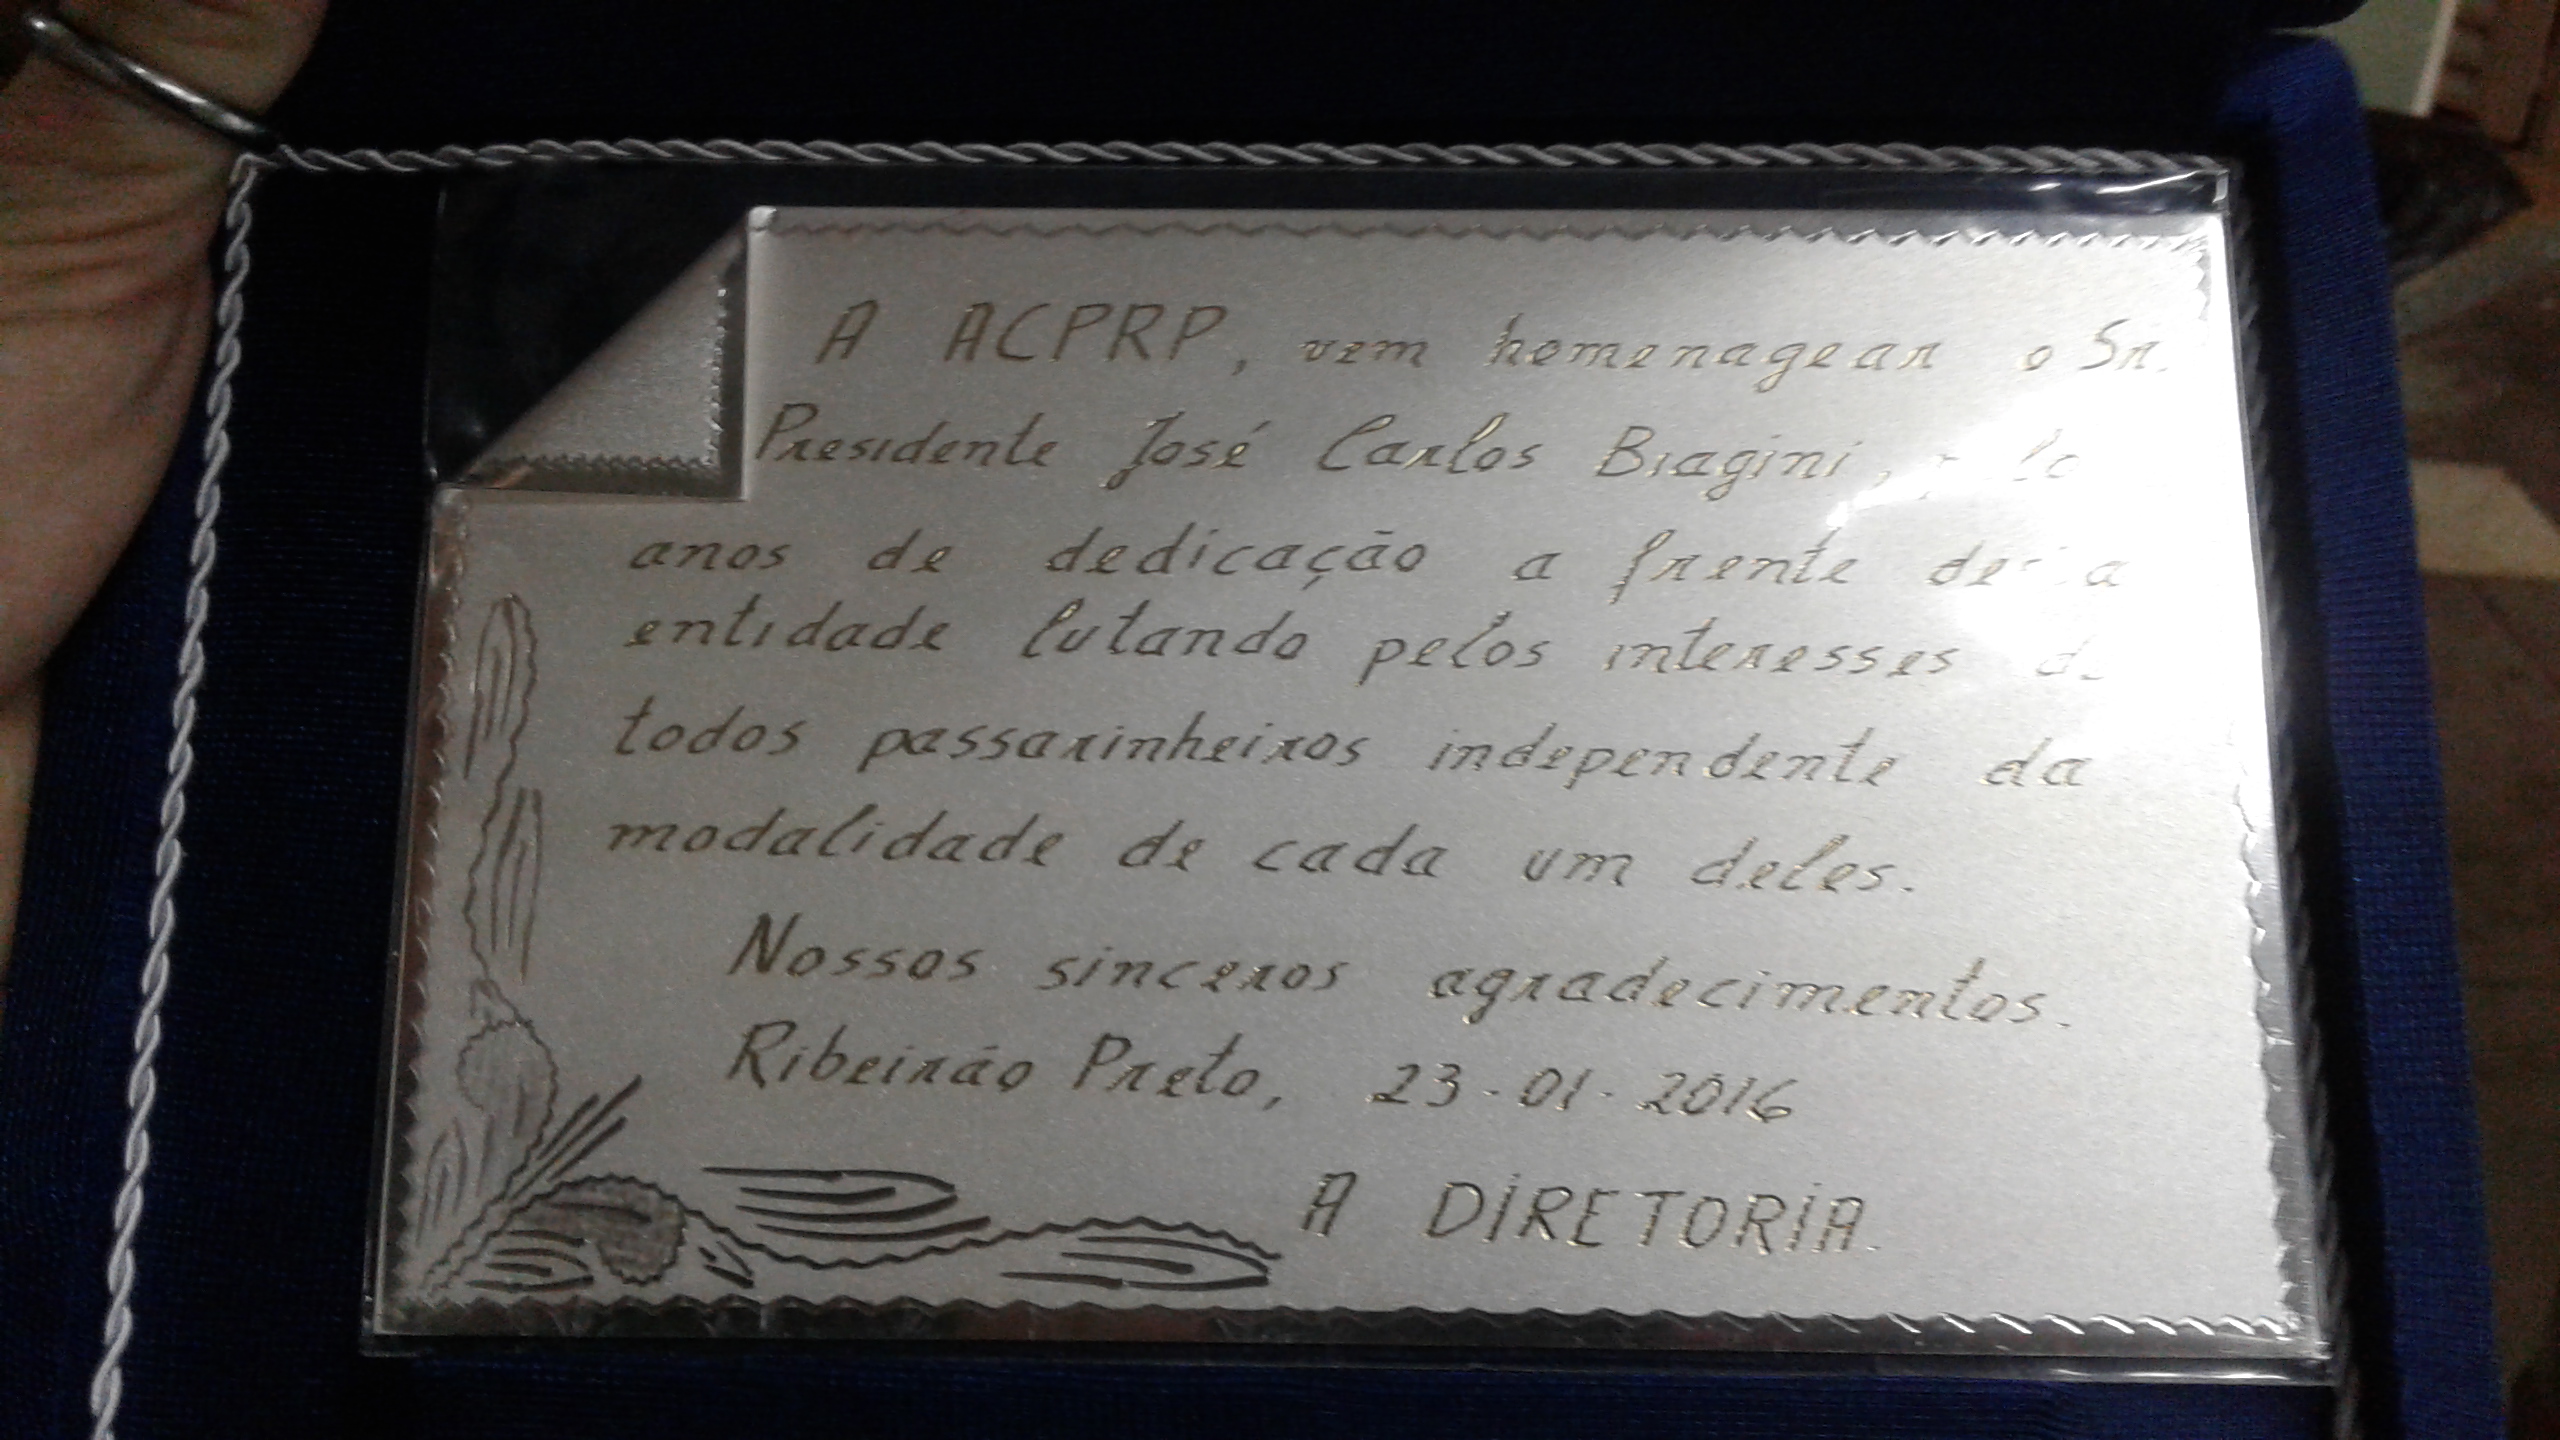 A ACPRP, vem homenagear o Sr.
Presidente José Carlos Biagini,
anos de dedicação a frente
entidade lutando pelos interesses
todos passarinheiros independente da
modalidade de cada um deles.
Nossos sinceros agradecimentos.
Ribeirão Preto, 23-01-2016
A DIRETORIA.